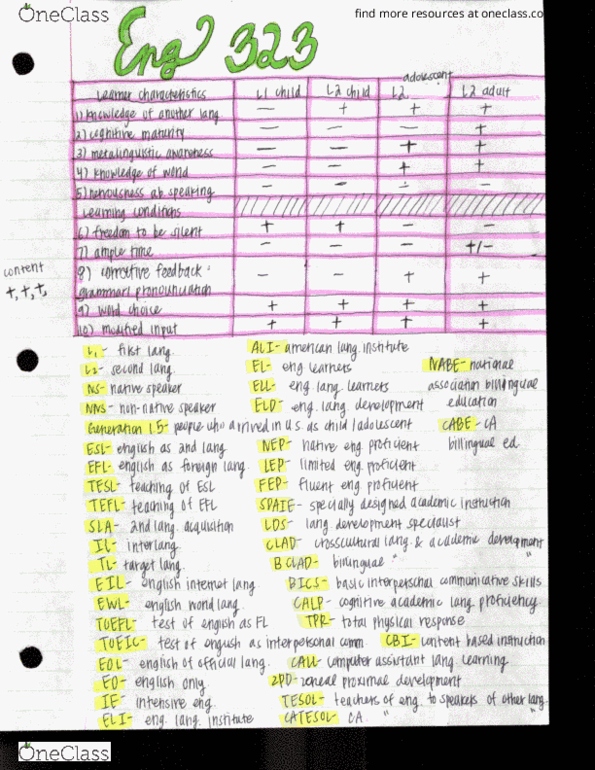 OneClass
find more resources at oneclass.co
Eng 323
adolescent
Learner characteristics L1 child L2 child L2 L2 adult
1) knowledge of another lang — + + +
2) cognitive maturity — — — +
3) metalinguistic awareness — — + +
4) knowledge of world — — + +
5) nervousness ab speaking — — ÷ —
Learning conditions
6) freedom to be silent + + — —
7) ample time — — — +/-
content
+, +, +,
8) corrective feedback: — — + +
grammar/pronounciation
9) word choice + + + +
10) modified input + + + +
L1- first lang. ALI- american lang. institute
L2- second lang. EL- eng learners NABE- national
NS- native speaker ELL- eng lang. learners association bilingual
NNS- non-native speaker ELD- eng. lang development education
Generation 1.5- people who arrived in U.S. as child/adolescent CABE- CA
ESL- english as 2nd lang NEP- native eng. proficient bilingual ed.
EFL- english as foreign lang. LEP- limited eng. proficient
TESL- teaching of ESL FEP- fluent eng. proficient
TEFL- teaching of EFL SDAIE- specially designed academic instruction
SLA- 2nd lang. acquisition LDS- lang. development specialist
IL- interlang. CLAD- crosscultural lang. & academic development
TL- target lang. BCLAD- bilingual " "
EIL- english internet lang. BICS- basic interpersonal communicative skills
EWL- english world lang. CALP- cognitive academic lang. proficiency
TOEFL- test of english as FL TPR- total physical response
TOEIC- test of english as interpersonal comm. CBI- content based instruction
EOL- english of official lang. CALL- computer assistant lang. learning
EO- english only ZPD- zoneal proximal development
IE- intensive eng. TESOL- teachers of eng. to speakers of other lang.
ELI- eng. lang. institute CATESOL- CA " "
OneClass